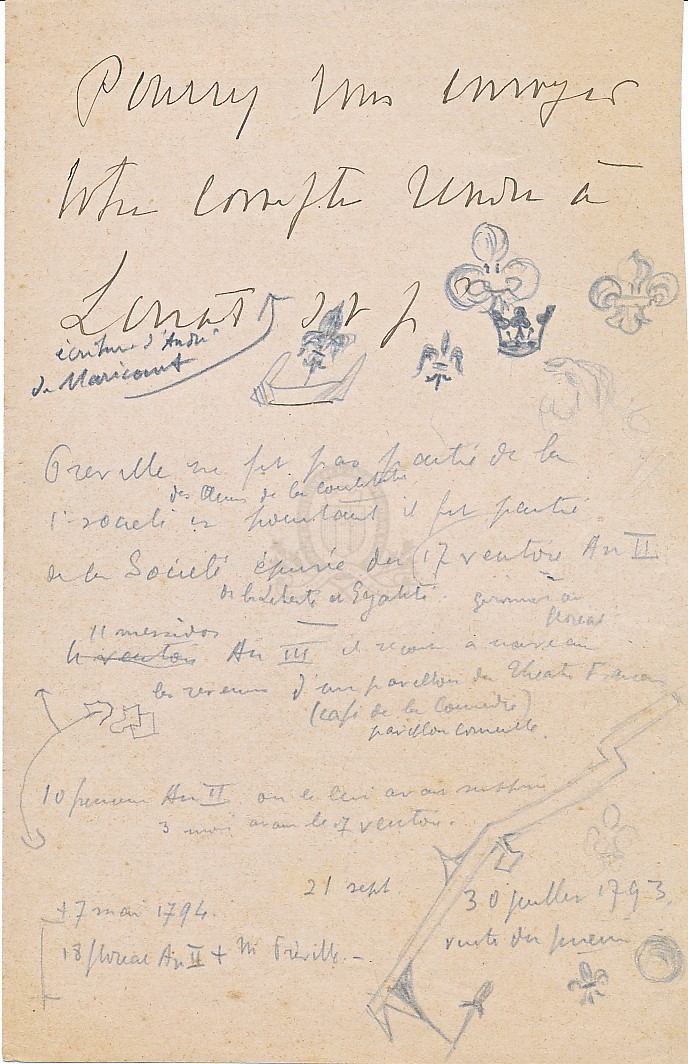 Pourriez vous envoyer
votre compte rendu à
s v p
écriture d'André
de Maricourt
Préville ne fit pas partie de la
des Amis de la
1e société et pourtant il fit partie
de la Société épurée du 17 ventose An II
de la Liberté et Egalité. germinal au
floreal
11 messidor
11 ventose An III il reçoit à nouveau
les revenus d'un pavillon du Theatre Francais
(café de la Comedie)
pavillon
10 An II on le lui avait
3 mois avant le 7 ventose.
21 sept.
+ 7 mai 1794.
30 juillet 1793,
18 floreal An II + M Préville. -
vente du